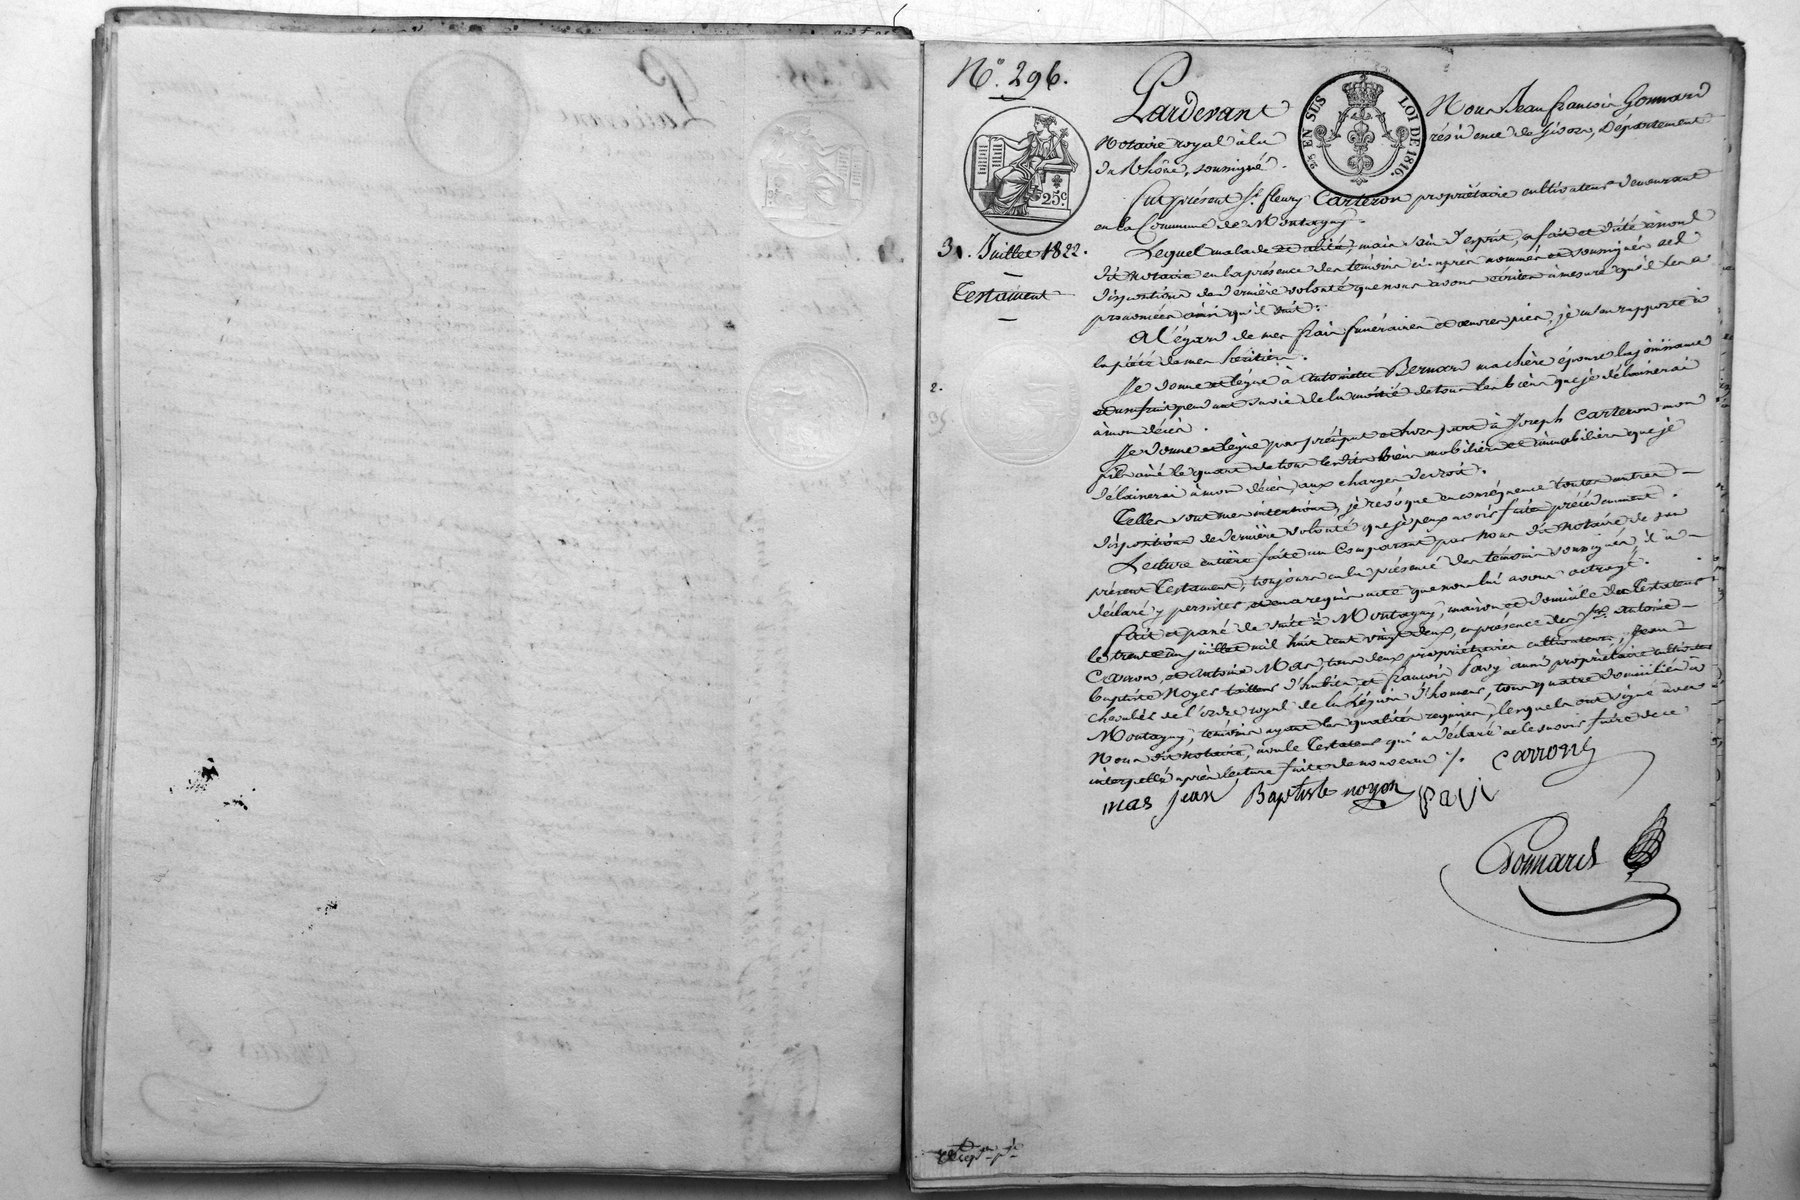 N.° 296.
25.c
31. Juillet 1822.
Testament
2.
Pardevant
EN SUS
LOI DE 1816.
Nous Jean françois Gonnard
Notaire royal à la
résidence de Givors, Département
du Rhône, soussigné.
Fut présent S.r fleury Carteron propriétaire cultivateur demeurant
en la Commune de Montagny.
Lequel malade et alité, mais sain d'esprit, a fait et dicté à nous
dit notaire en la présence des témoins ci-après nommés et soussignés ses
dispositions de dernière volonté que nous avons écrites à mesure qu'il les a
prononcées ainsi qu'il suit:
A l'égard de mes frais funéraires et œuvres pies, je m'en rapporte à
la piété de mes héritiers.
Je donne et lègue à Antoinette Bernard ma chère épouse la jouissance
et usufruit pendant sa vie de la moitié de tous les biens que je délaisserai
à mon décès.
Je donne et lègue par préciput et hors part à Joseph Carteron mon
fils ainé le quart de tous lesdits biens mobiliers et immobiliers que je
délaisserai à mon décès, aux charges de droit.
Telles sont mes intentions, je révoque en conséquence toutes autres
dispositions de dernière volonté que je peux avoir faites précédemment.
Lecture entière faite au Comparant par nous dit notaire, de son
présent Testament, toujours en la présence des témoins soussignés il a
déclaré y persister et en a requis acte que nous lui avons octroyé.
fait et passé de suite à Montagny, maison et domicile du Testateur
le trente un juillet mil huit cent vingt deux, en présence des S.rs Antoine
Carron, et Antoine Mas, tous deux propriétaires cultivateurs, Jean
Baptiste Noyer tailleur d'habits et françois Pavy aussi propriétaire cultivateur
chevalier de l'ordre royal de la Légion d'honneur, tous quatre domiciliés à
Montagny, témoins ayant les qualités requises, lesquels ont signé avec
Nous dit notaire, non le Testateur qui a déclaré ne le savoir faire de ce
interpellé après lecture faite de nouveau %.
carron
mas Jean Baptiste noyer pavi
Gonnard